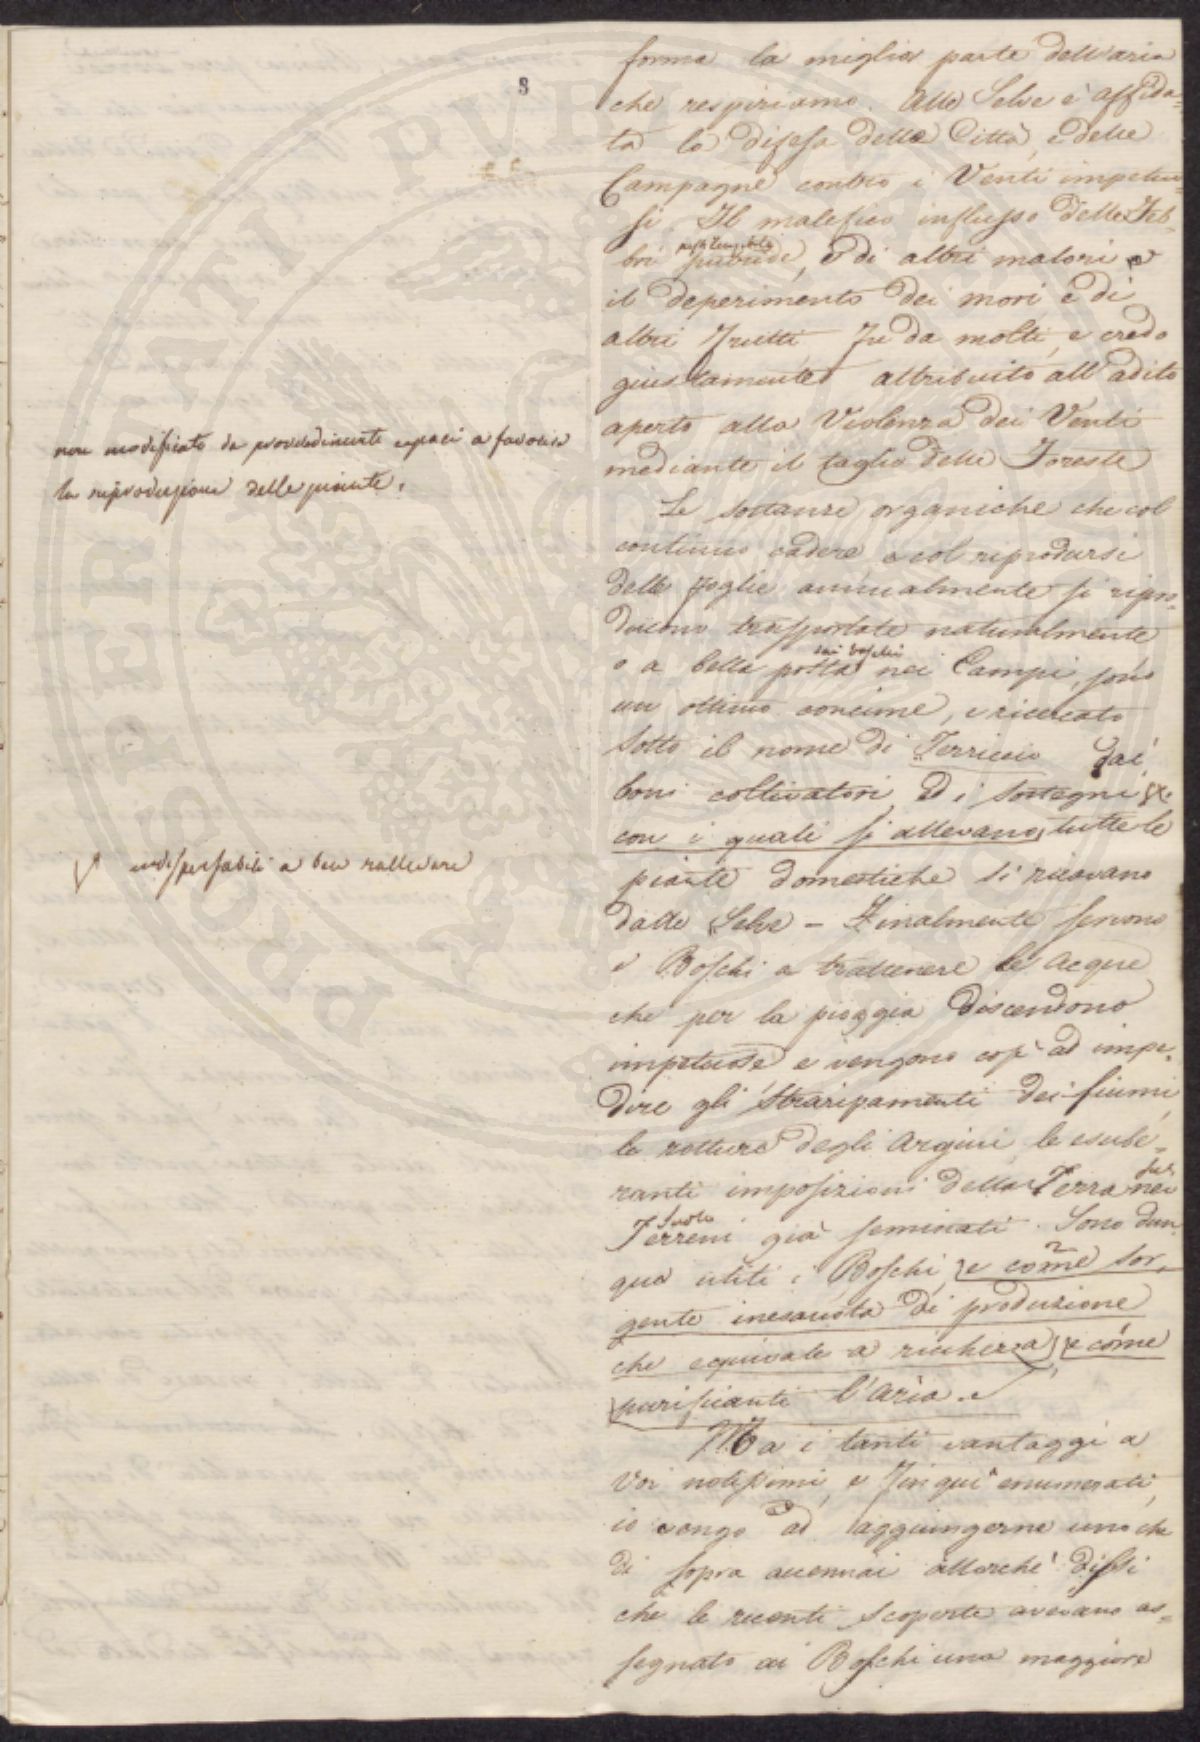 8
forma la miglior parte dell'aria
che respiriamo. Alle Selve è affida=
ta la difesa delle Città, e delle
Campagne contro i Venti impetuo=
si. Il malefico influsso delle Feb=
pestilenziali
bri putride, e di altri malori e
il deperimento dei mori, e di
altri Frutti fu da molti, e credo
giustamente attribuito all'adito
aperto alla Violenza dei Venti
mediante il taglio delle Foreste
non modificato da provvedimenti capaci a favorire
la riproduzione delle piante.
Le sostanze organiche che col
continuo cadere, e col riprodursi
delle foglie annualmente si ripro=
ducono trasportate naturalmente
dai boschi
o a bella posta nei Campi, sono
un ottimo concime, e ricercato
sotto il nome di Terriccio dai
boni coltivatori ed i sostegni
con i quali si allevano tutte le
indispensabili a ben rallevare
piante domestiche si ricavano
dalle Selve - Finalmente servono
i Boschi a trattenere le Acque
che per la pioggia discendono
impetuose e vengono così ad impe=
dire gli straripamenti dei fiumi
le rotture degli argini, le esube=
ranti imposizioni della Terra nei
sul
suolo
Terreni già seminati. Sono dun=
que utili i Boschi, e come sor=
gente inesausta di produzione
che equivale a richezza, e come
purificanti l'Aria. e
Ma i tanti vantaggi a
Voi notissimi, e fin qui enumerati,
io vengo ad aggiungerne uno che
di sopra accennai allorchè dissi
che le recenti scoperte avevano as=
segnato ai Boschi una maggiore
PROSPERITATI PVBLICAE